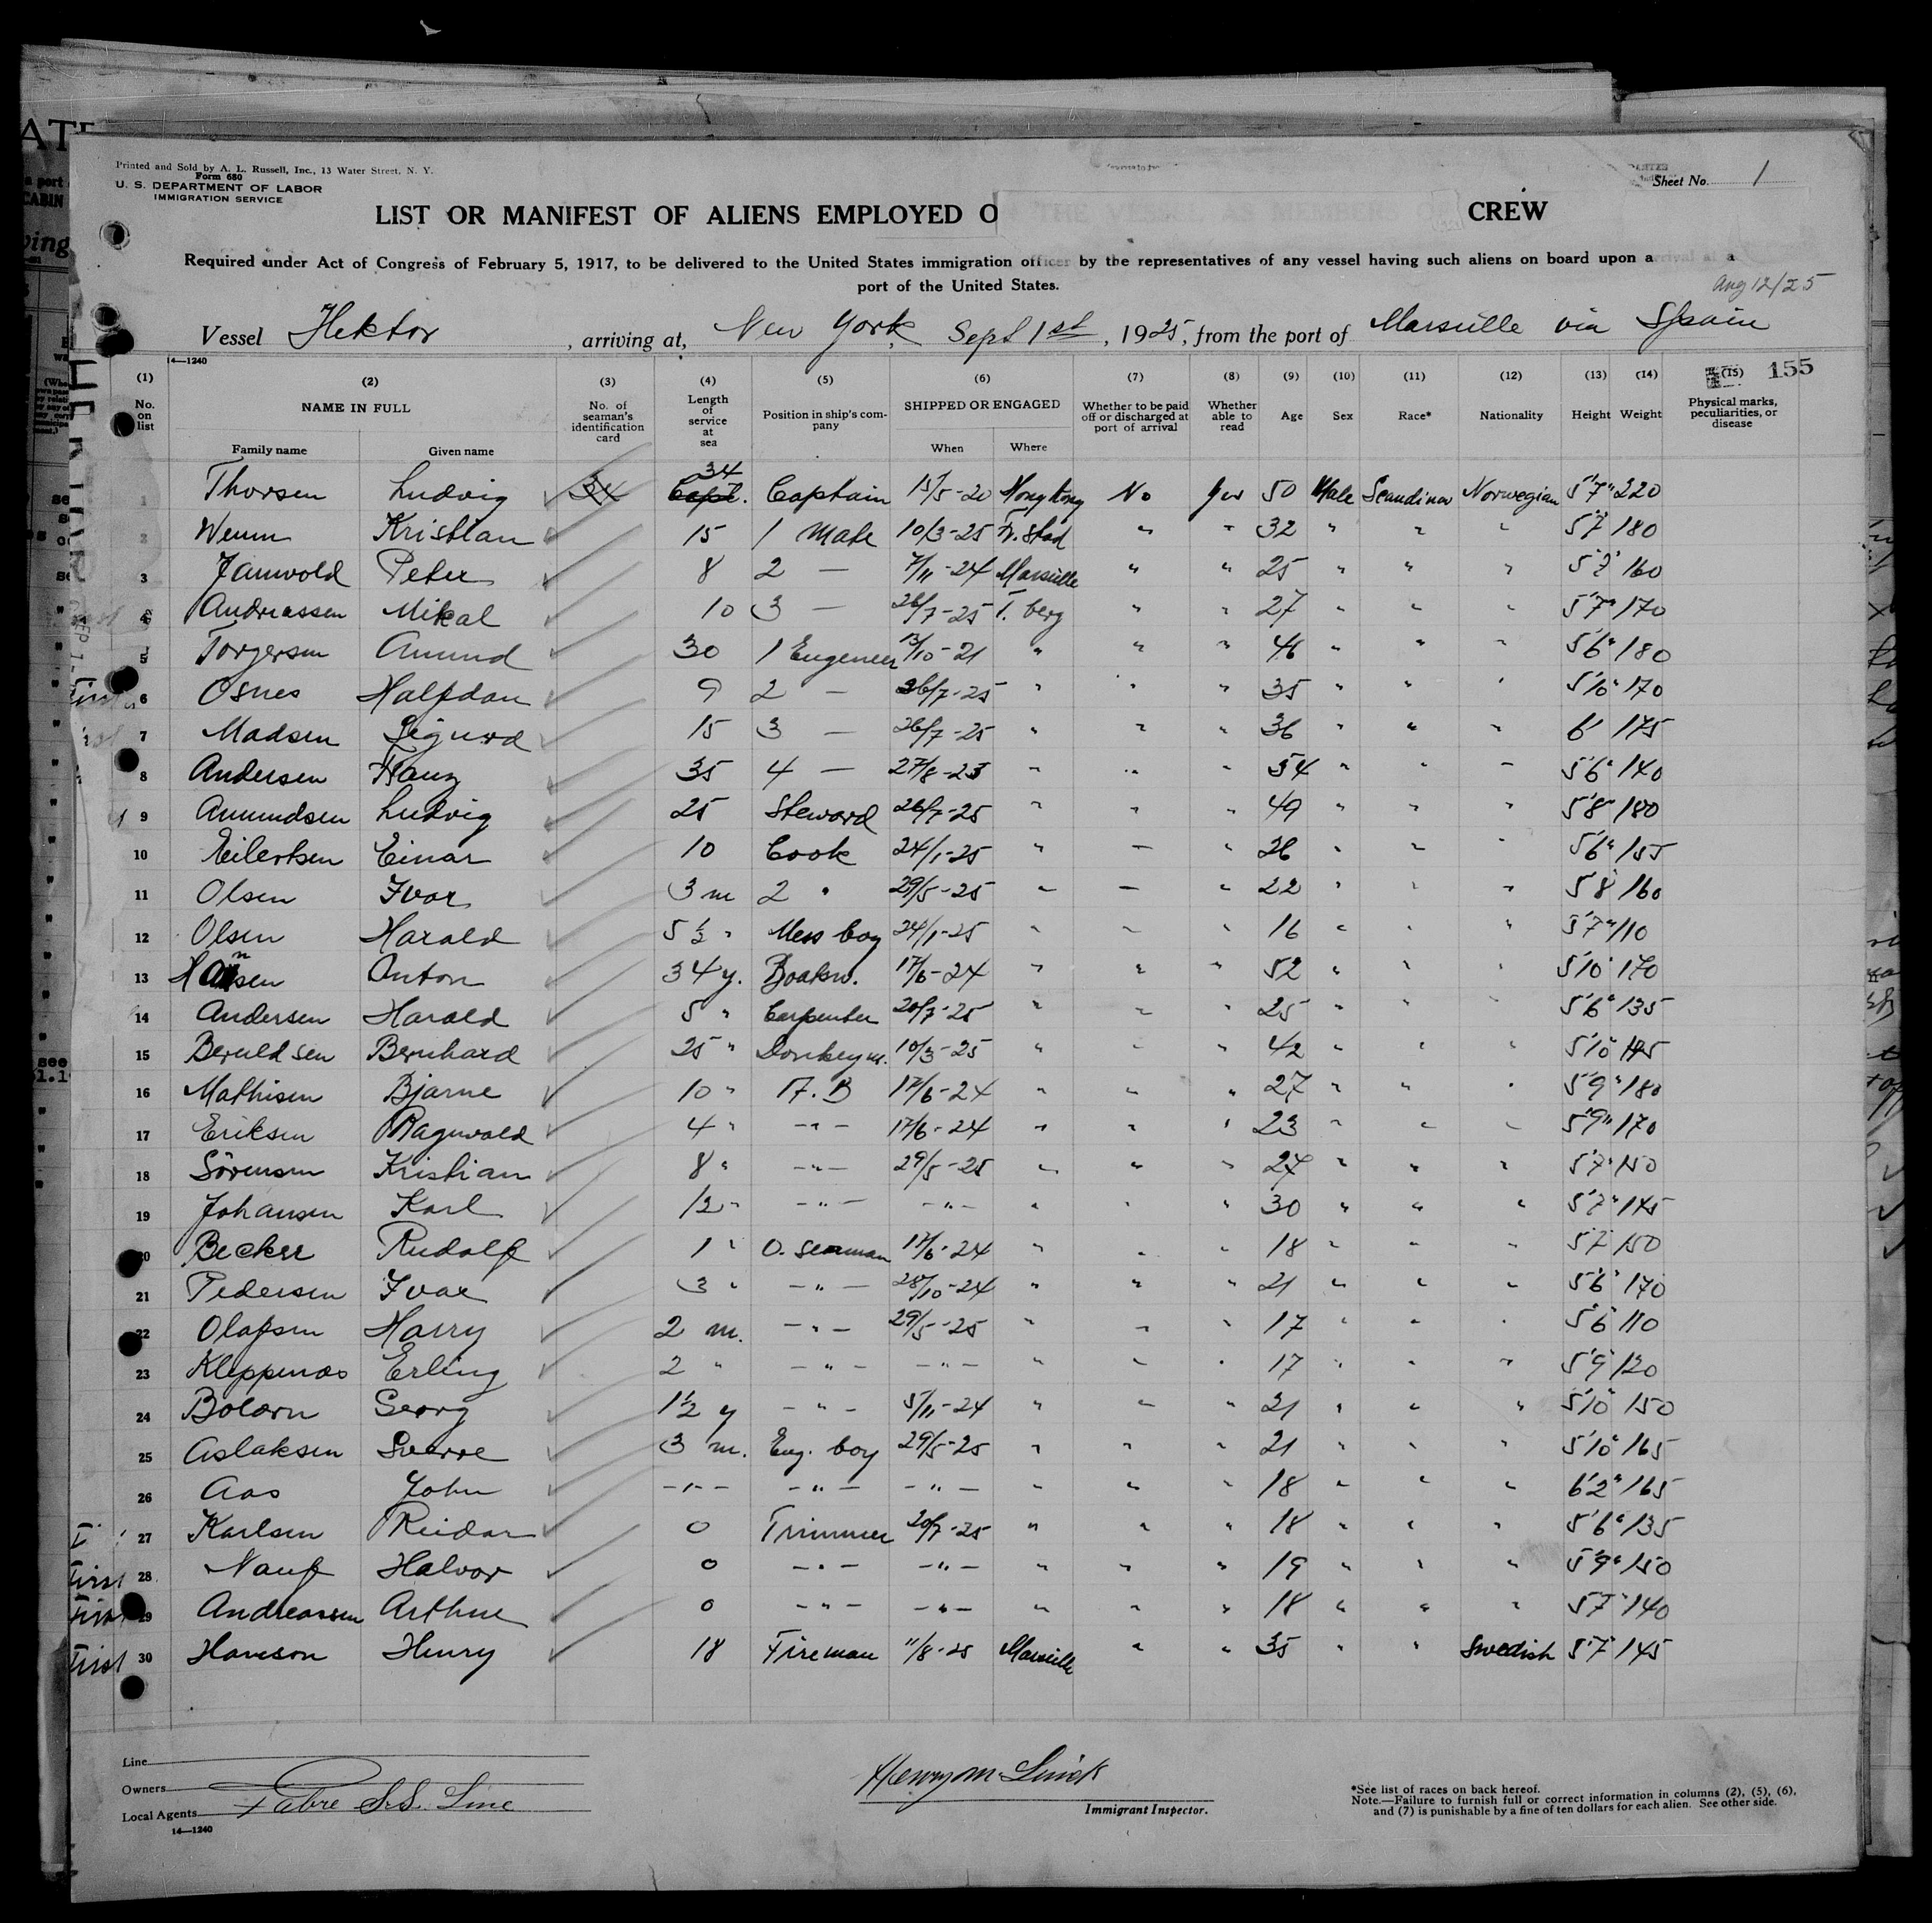 Printed and Sold by A. L. Russell, Inc., 13 Water Street, N. Y.
Form 680
U. S. DEPARTMENT OF LABOR
IMMIGRATION SERVICE
Sheet No. 1
LIST OR MANIFEST OF ALIENS EMPLOYED ON THE VESSEL AS MEMBERS OF CREW
Required under Act of Congress of February 5, 1917, to be delivered to the United States immigration officer by the representatives of any vessel having such aliens on board upon arrival at a
port of the United States.
Aug 12/25
Vessel Hektor, arriving at, New York, Sept 1st, 1925, from the port of Marseille via Spain
14—1240
155
(1) (2) (3) (4) (5) (6) (7) (8) (9) (10) (11) (12) (13) (14) (15)
No. on list NAME IN FULL No. of seaman's identification card Length of service at sea Position in ship's company SHIPPED OR ENGAGED Whether to be paid off or discharged at port of arrival Whether able to read Age Sex Race* Nationality Height Weight Physical marks, peculiarities, or disease
Family name Given name When Where
1 Thorsen Ludvig 34 34 Capt. Captain 15/5-20 Hong Kong No Yes 50 Male Scandinav Norwegian 5'7" 220
2 Wenm Kristian 15 1 Mate 10/3-25 Fr. Stad " " 32 " " " 5'7 180
3 Jamvold Peter 8 2 — 7/11-24 Marseille " " 25 " " " 5'7" 160
4 Andreassen Mikal 10 3 — 26/7-25 T. berg " " 27 " " " 5'7" 170
5 Torgersen Amund 30 1 Engeneer 13/10-21 " " " 46 " " " 5'6" 180
6 Osnes Halfdan 9 2 — 26/7-25 " " " 35 " " " 5'10" 170
7 Madsen Sigurd 15 3 — 26/7-25 " " " 36 " " " 6' 175
8 Andersen Franz 35 4 — 27/8-23 " " " 54 " " " 5'6" 140
9 Amundsen Ludvig 25 Steward 26/7-25 " " " 49 " " " 5'8" 180
10 Eilertsen Einar 10 Cook 24/1-25 " " " 26 " " " 5'6" 155
11 Olsen Ivar 3 m 2 " 29/5-25 " " " 22 " " " 5'8 160
12 Olsen Harald 5 ½ " Mess boy 24/1-25 " " " 16 " " " 5'7" 110
13 Hansen Anton 34 y. Boatsw. 17/6-24 " " " 52 " " " 5'10" 170
14 Andersen Harald 5 " Carpenter 20/7-25 " " " 25 " " " 5'6" 135
15 Beruldsen Bernhard 25 " Donkeym. 10/3-25 " " " 42 " " " 5'10"
16 Mathisen Bjarne 10 " A. B 17/6-24 " " " 27 " " " 5'9" 180
17 Eriksen Ragnvald 4 " -"- 17/6-24 " " " 23 " " " 5'9" 170
18 Sörensen Kristian 8 " -"- 29/5-25 " " " 27 " " " 5'7" 150
19 Johansen Karl 12 " -"- -"- " " " 30 " " " 5'7" 145
20 Becker Rudolf 1 " O. seaman 17/6-24 " " " 18 " " " 5'7 150
21 Pedersen Ivar 3 " -"- 28/10-24 " " " 21 " " " 5'6" 170
22 Olafsen Harry 2 m. -"- 29/5-25 " " " 17 " " " 5'6" 110
23 Kleppenæs Erling 2 " -"- -"- " " " 17 " " " 5'9" 120
24 Bolærn Georg 1½ y -"- 5/11-24 " " " 21 " " " 5'10" 150
25 Aslaksen Sverre 3 m. Eng. boy 29/5-25 " " " 21 " " " 5'10" 165
26 Aas John -"- -"- -"- " " " 18 " " " 6'2" 165
27 Karlsen Reidar 0 Trimmer 20/7-25 " " " 18 " " " 5'6" 135
28 Nauf Halvor 0 -"- -"- " " " 19 " " " 5'9" 150
29 Andreassen Arthur 0 -"- -"- " " " 18 " " " 5'7" 140
30 Hansson Henry 18 Fireman 11/8-25 Marseille " " 35 " " Swedish 5'7" 145
Line
Owners
Local Agents Fabre S.S. Line
14—1240
Immigrant Inspector.
*See list of races on back hereof.
Note.—Failure to furnish full or correct information in columns (2), (5), (6),
and (7) is punishable by a fine of ten dollars for each alien. See other side.